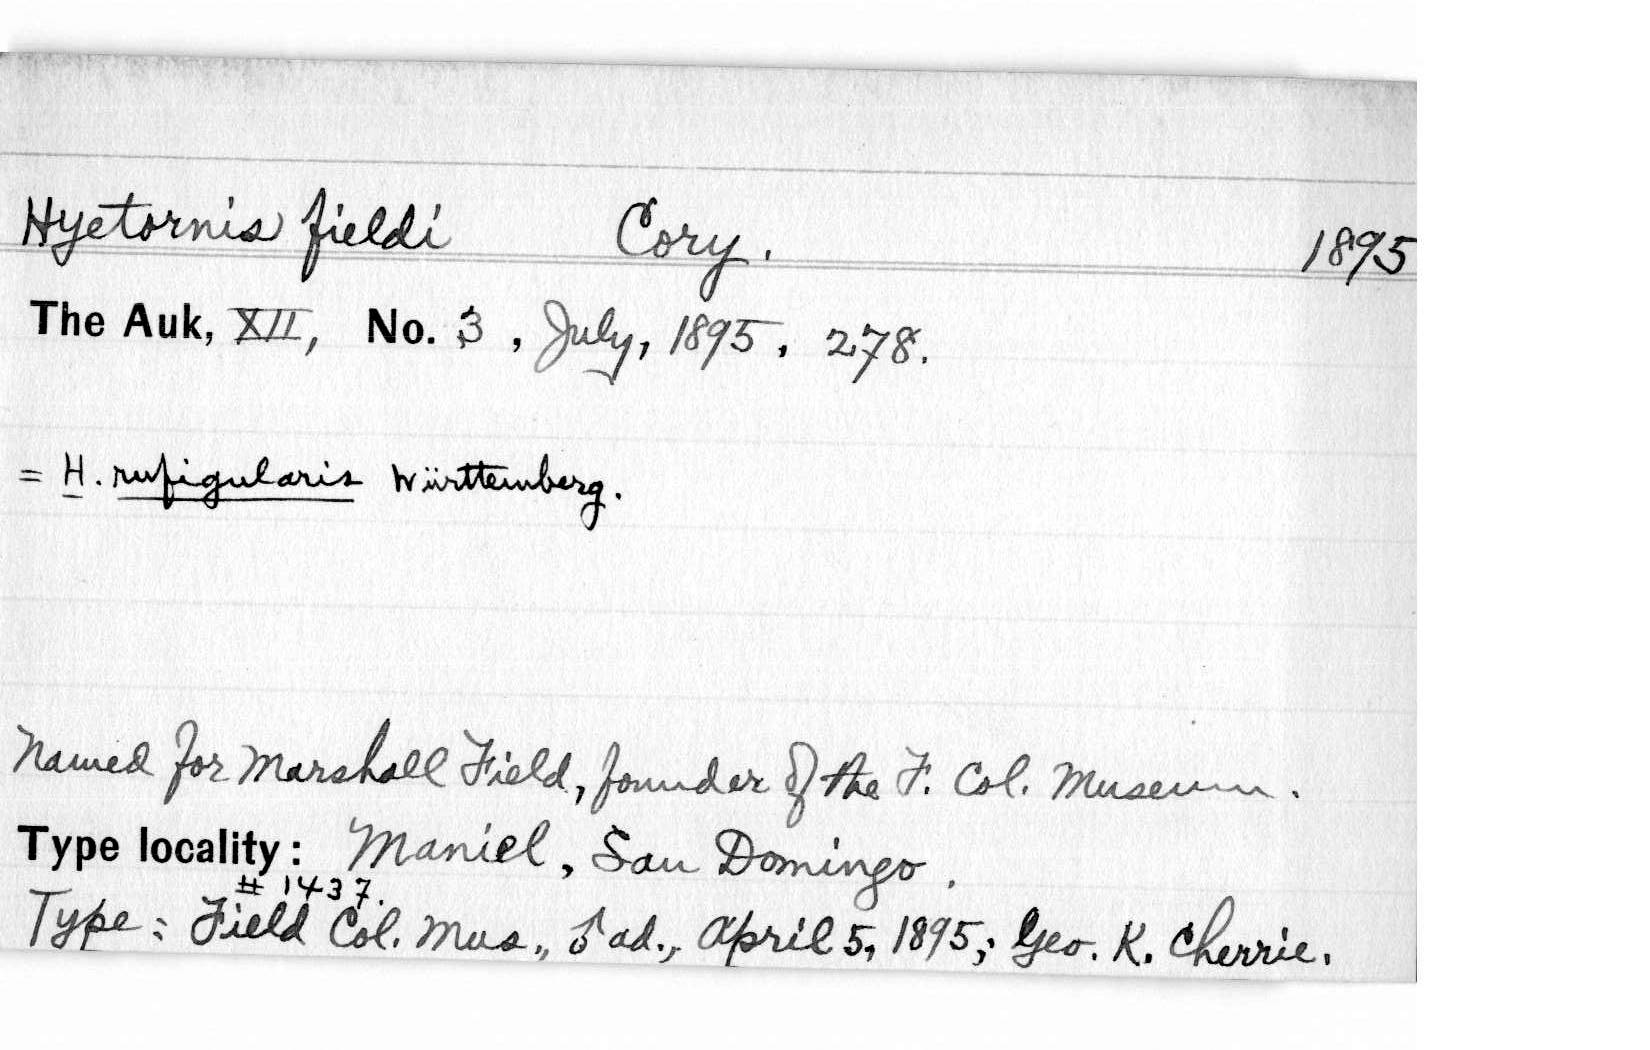 Hyetornis fieldi Cory. 1895
The Auk, XII, No. 3, July, 1895, 278.
= H. rufigularis Württemberg.
Named for Marshall Field, founder of the F. Col. Museum.
Type locality: Maniel, San Domingo.
# 1437.
Type: Field Col. Mus., ♂ ad., April 5, 1895; Geo. K. Cherrie.